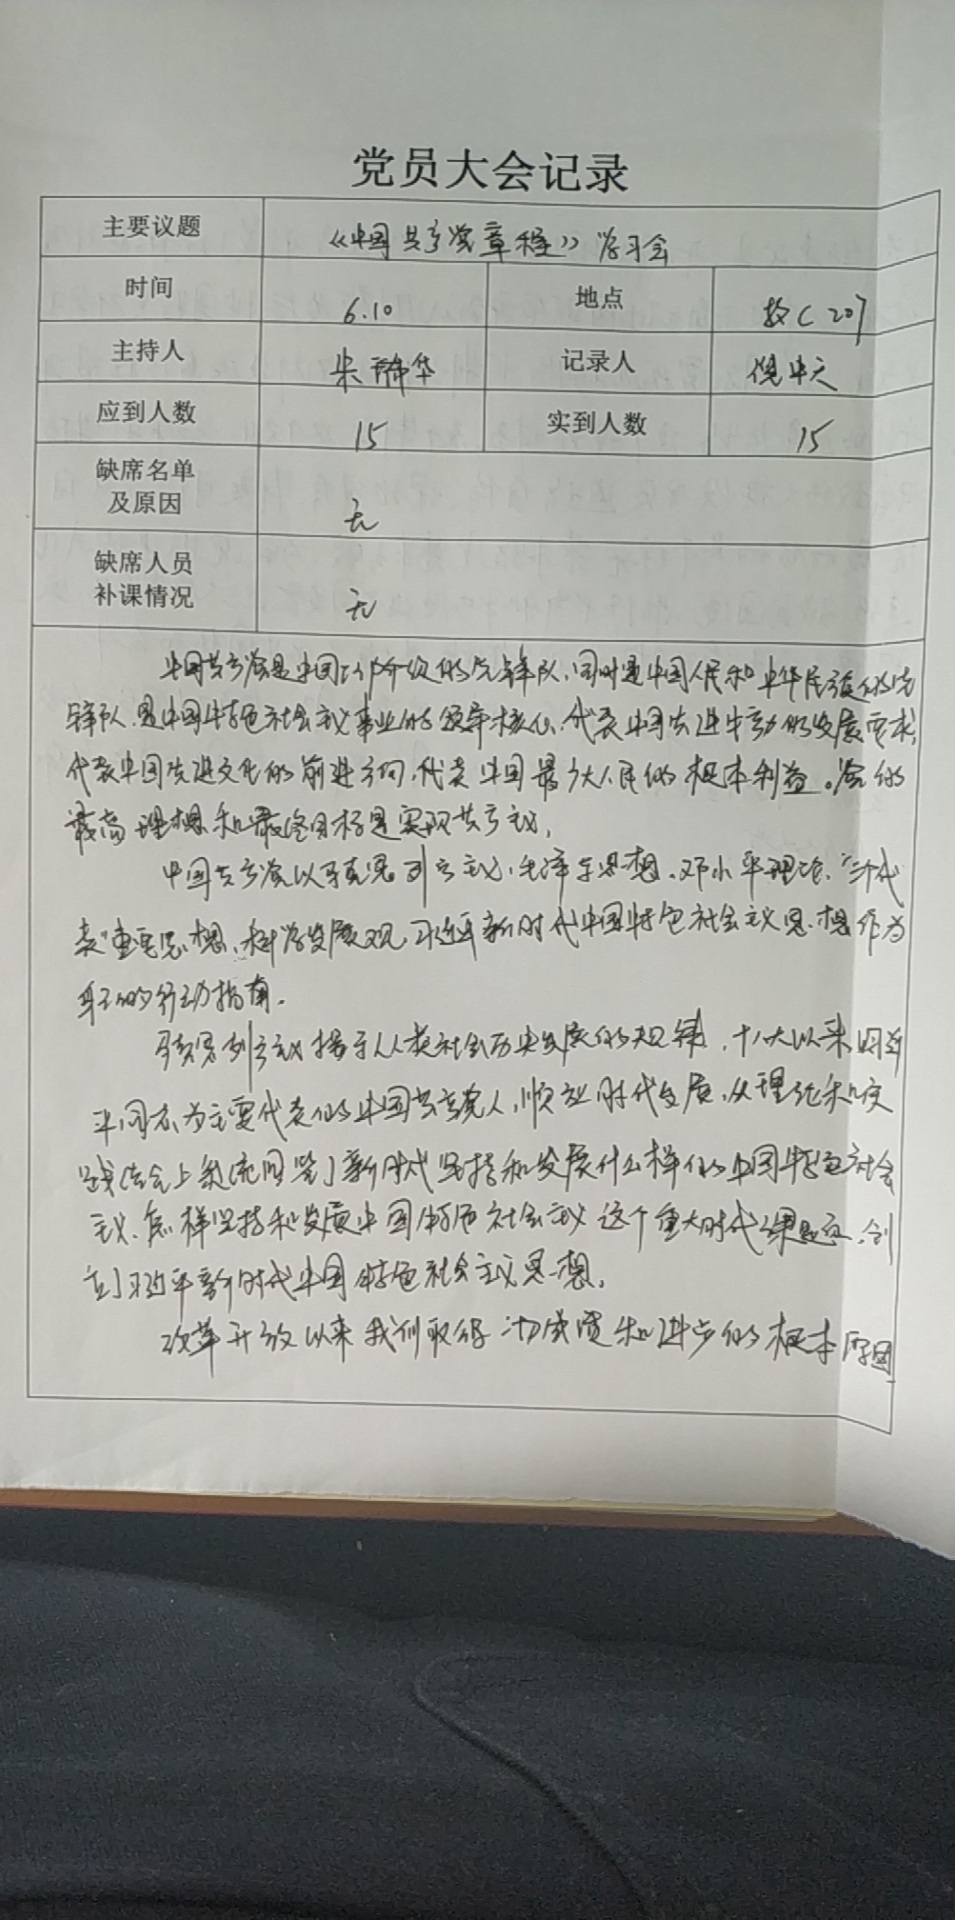 党员大会记录
主要议题 《中国共产党章程》学习会
时间 6.10 地点 教C207
主持人 宋 华 记录人 倪中天
应到人数 15 实到人数 15
缺席名单
及原因 无
缺席人员
补课情况 无
中国共产党是中国工人阶级的先锋队,同时是中国人民和中华民族的先
锋队,是中国特色社会主义事业的领导核心,代表中国先进生产力的发展要求,
代表中国先进文化的前进方向,代表中国最广大人民的根本利益。党的
最高理想和最终目标是实现共产主义。
中国共产党以马克思列宁主义、毛泽东思想、邓小平理论、“三个代
表”重要思想、科学发展观、习近平新时代中国特色社会主义思想作为
自己的行动指南。
马克思列宁主义揭示人类社会历史发展的规律,十八大以来,习近
平同志为主要代表的中国共产党人,顺应时代发展,从理论和实
践结合上系统回答了新时代坚持和发展什么样的中国特色社会
主义、怎样坚持和发展中国特色社会主义这个重大时代课题,创
立了习近平新时代中国特色社会主义思想。
改革开放以来我们取得一切成绩和进步的根本原因